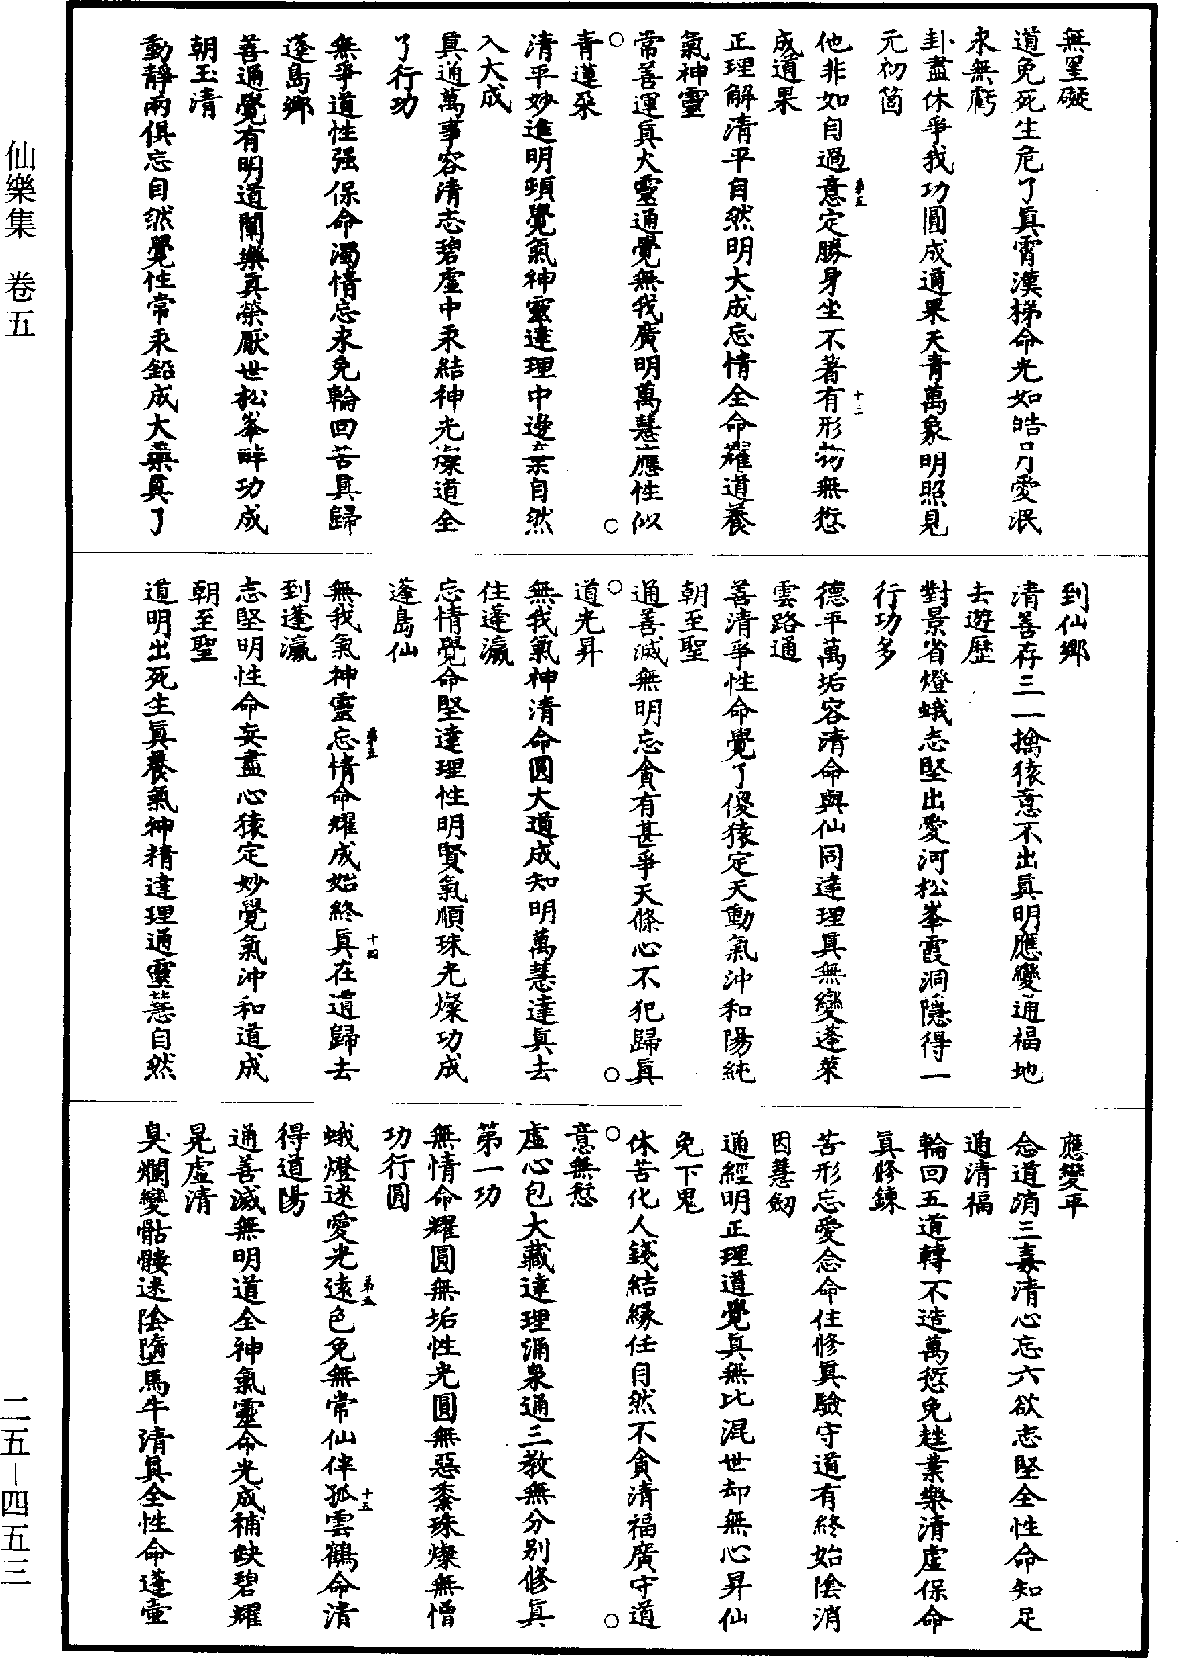 無罣礙
道免死生危了眞霄漢梯命光如皓月愛泯
永無虧
卦盡休爭我功圓成道果天青萬象明照見
元初箇
他非如自過意定勝身坐不著有形物無愆
成道果
正理解清平自然明大成忘情全命耀道養
氣神靈
常善運眞大靈通覺無我廣明萬慧應性似
青蓮朶
清平妙進明頓覺氣神靈達理中邊棄自然
入大成
眞通萬事容清志碧虛中汞結神光燦道全
了行功
無爭道性强保命濁情忘永免輪回苦眞歸
蓬島鄉
善通覺有明道闡樂眞榮厭世松峯醉功成
朝玉清
動靜兩俱忘自然覺性常汞鉛成大藥眞了
到仙鄉
清善存三一擒猿意不出眞明應變通福地
去遊歷
對景省燈蛾志堅出愛河松峯霞洞隱得一
行功多
德平萬垢容清命與仙同達理眞無變蓬萊
雲路通
善清爭性命覺了傻猿定天動氣沖和陽純
朝至聖
通善滅無明忘貪有甚爭天條心不犯歸眞
道光昇
無我氣神清命圓大道成知明萬慧達眞去
住蓬瀛
忘情覺命堅達理性明賢氣順珠光燦功成
蓬島仙
無我氣神靈忘情命耀成始終眞在道歸去
到蓬瀛
志堅明性命妄盡心猿定妙覺氣沖和道成
朝至聖
道明出死生眞養氣神精達理通靈慧自然
應變平
念道消三毒清心忘六欲志堅全性命知足
通清福
輪回五道轉不造萬愆免趓業樂清虛保命
眞修鍊
苦形忘愛念命住修眞驗守道有終始陰消
因慧劒
通經明正理道覺眞無比混世却無心昇仙
免下鬼
休苦化人錢結緣任自然不貪清福廣守道
意無愆
虛心包大藏達理涌泉通三敎無分別修眞
第一功
無情命耀圓無垢性光圓無惡黍珠燦無憎
功行圓
蛾燈迷愛光遠色免無常仙伴孤雲鶴命清
得道陽
通善滅無明道全神氣靈命光成補缺碧耀
晃虛清
臭爛變骷髏迷陰墮馬牛清眞全性命蓬壺
第五
十三
第五
十四
第五
十五
仙樂集　卷五
二五－四五三